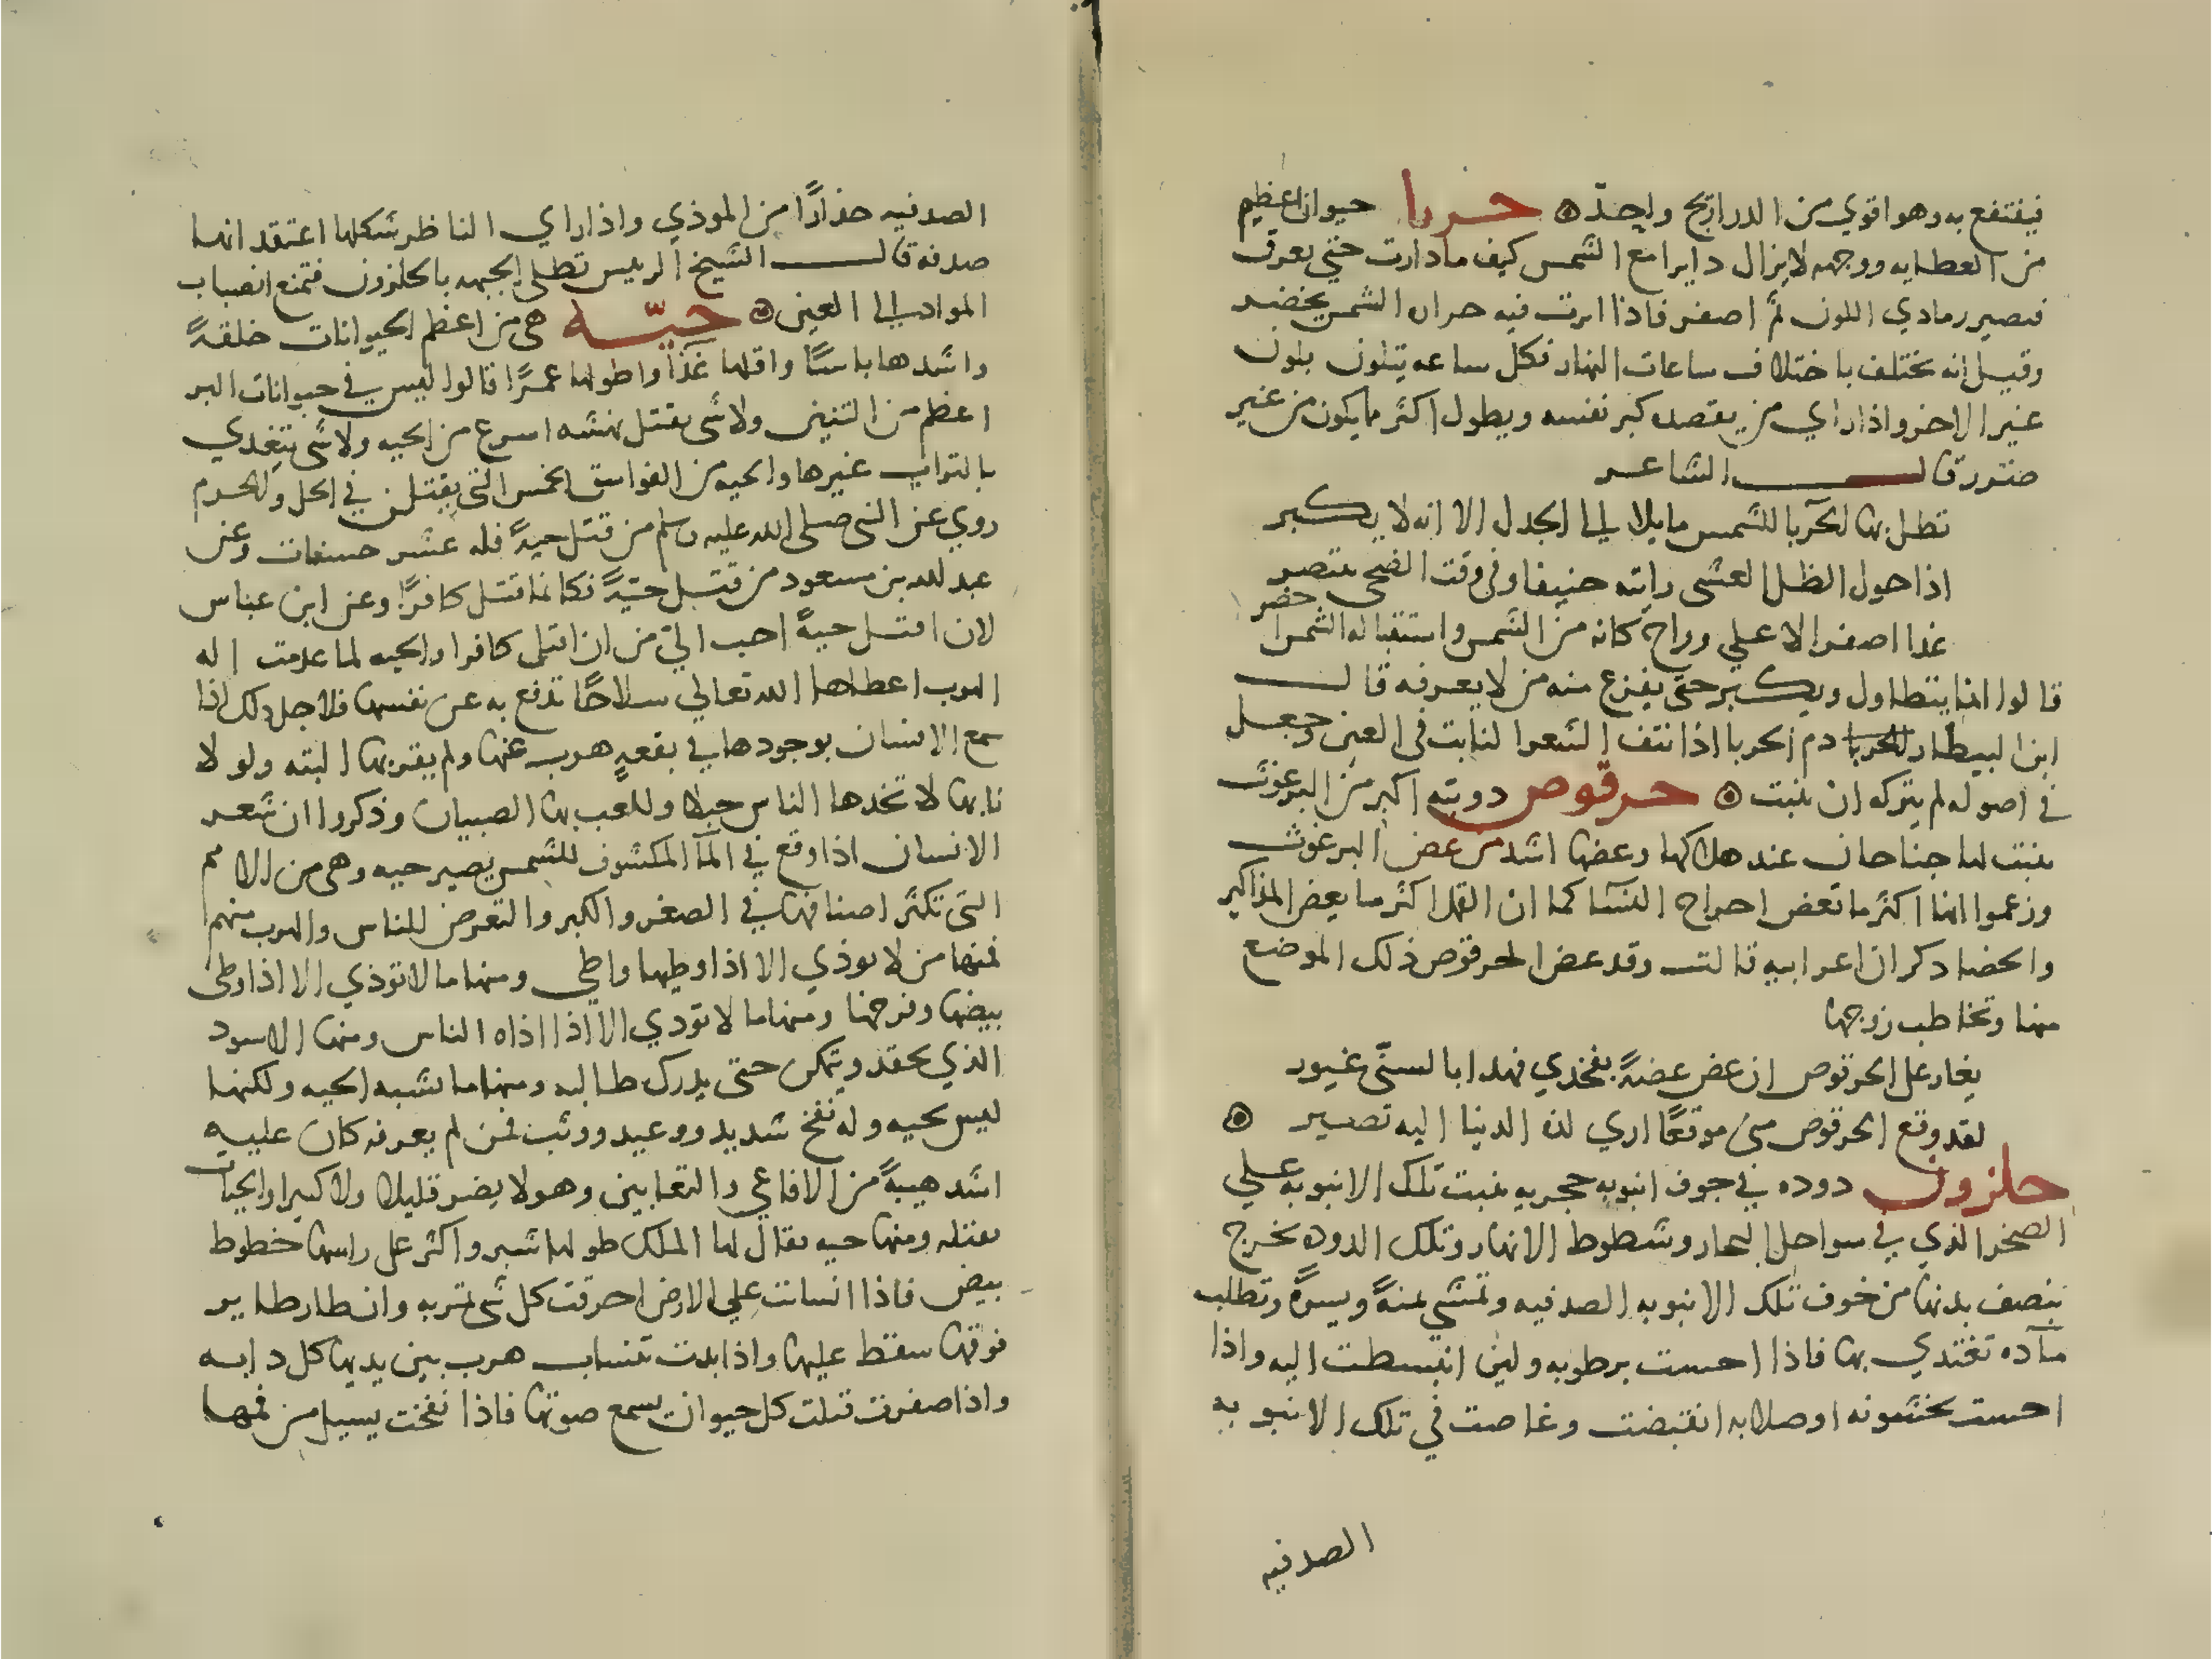 فينتفع به وهو اقوي من الدراريح واحدّ ۞ حربا حيوان اعظم
من العظايه ووجهه لا يزال دايرا مع الشمس كيف ما دارت حتي يعرف
فيصير رمادي اللون ثم اصفر فاذا اثرت فيه حران الشمس يخضر
وقيل انه يختلف باختلاف ساعات النهار فكل ساعه يتلون بلون
غير الاخر واذا راي من يقصد كبر نفسه ويطول اكثر ما يكون من غير
ضرر قال الشاعر
تظل بها الحربا للشمس مايلا الي الجدل الا انه لا يكبر
اذا حول الظل العشي رايته حنيفا وفي وقت الضحي يتنصر
غدا اصفر الاعلي وراح كانه من الشمس واستقباله الشمس اخضر
قالوا انما يتطاول ويكبر حتي يفزع منه من لا يعرفه قال
ابن البيطار دم الحربا اذا نتف الشعر النابت في العين وجعل
في اصوله لم يتركه ان ينبت ۞ حرقوص دويبه اكبر من البرغوث
ينبت لها جناحان عند هلاكها وعضها اشد من عض البرغوث
وزعموا انها اكثر ما تعض احراح النسآ كما ان القمل اكثر ما يعض المذاكير
والخصا ذكر ان اعرابيه قالت وقد عض الحرقوص ذلك الموضع
منها وتخاطب زوجها
يغار علي الحرقوص ان عض عضةً بفخذي فهد ابا لسنّي غيور
لقد وقع الحرقوص مني موقعًا اري لذه الدنيا اليه تصير ۞
حلزون دوده في جوف انبوبه حجريه ينبت تلك الانبوبه علي
الصخر الذي في سواحل البحار وشطوط الانهار وتلك الدوده تخرج
بنصف بدنها من خوف تلك الانبوبه الصدفيه وتمشي يمنةً ويسرةً وتطلب
مآده تغتذي بها فاذا احست برطوبه ولين انبسطت اليه واذا
احست بخشونه او صلابه انقبضت وغاصت في تلك الانبوبه
الصدفيه
الصدفيه حذارًا من الموذي واذا راي الناظر شكلها اعتقد انها
صدفه قال الشيخ الرييس تطلي الجبهه بالحلزون فتمنع انصباب
المواد الي العين ۞ حيّه هي من اعظم الحيوانات خلقةً
واشدها باسًا واقلها غذآ واطولها عمرًا قالوا ليس في حيوانات البر
اعظم من التنين ولا شي يقتل بنهشه اسرع من الحيه ولا شي يتغدي
بالتراب غيرها والحيه من الفواسق الخمس التي يقتلن في الحل والحرم
روي عن النبي صلي الله عليه وسلم من قتل حيةً فله عشر حسنات وعن
عبد الله بن مسعود من قتل حيّةً فكانما قتل كافرًا وعن ابن عباس
لان اقتل حيةً احب الي من ان اقتل كافرا والحيه لما عدمت اله
الهرب اعطاها الله تعالي سلاحًا تدفع به عن نفسها فلاجل ذلك اذا
سمع الانسان بوجودها في بقعه هرب عنها ولم يقربها البته ولو لا
نابها لاتخدها الناس حبلا وللعب بها الصبيان وذكروا ان شعر
الانسان اذا وقع في المآ المكشوف للشمس يصير حيه وهي من الامم
التي تكثر اصنافها في الصغر والكبر والتعرض للناس والهرب منهم
فمنها من لا يوذي الا اذا وطيها واطي ومنها ما لا توذي الا اذا وطي
بيضها وفرخها ومنها ما لا تودي الا اذا اذاه الناس ومنها الاسود
الذي يحقد ويتمكن حتي يدرك طالبه ومنها ما يشبه الحيه ولكنها
ليس بحيه وله نفخ شديد ووعيد ووثب فمن لم يعرفه كان عليه
اشد هيبةً من الافاعي والتعابين وهو لا يضر قليلا ولا كبيرا والحيات
تقتله ومنها حيه يقال لها الملك طولها شبر واكثر علي راسها خطوط
بيض فاذا انسابت علي الارض احرقت كل شي تمر به وان طار طاير
فوقها سقط عليها واذا بدت تنساب هرب بين يديها كل دابه
واذا صفرت قتلت كل حيوان يسمع صوتها فاذا نفخت يسيل من فمها